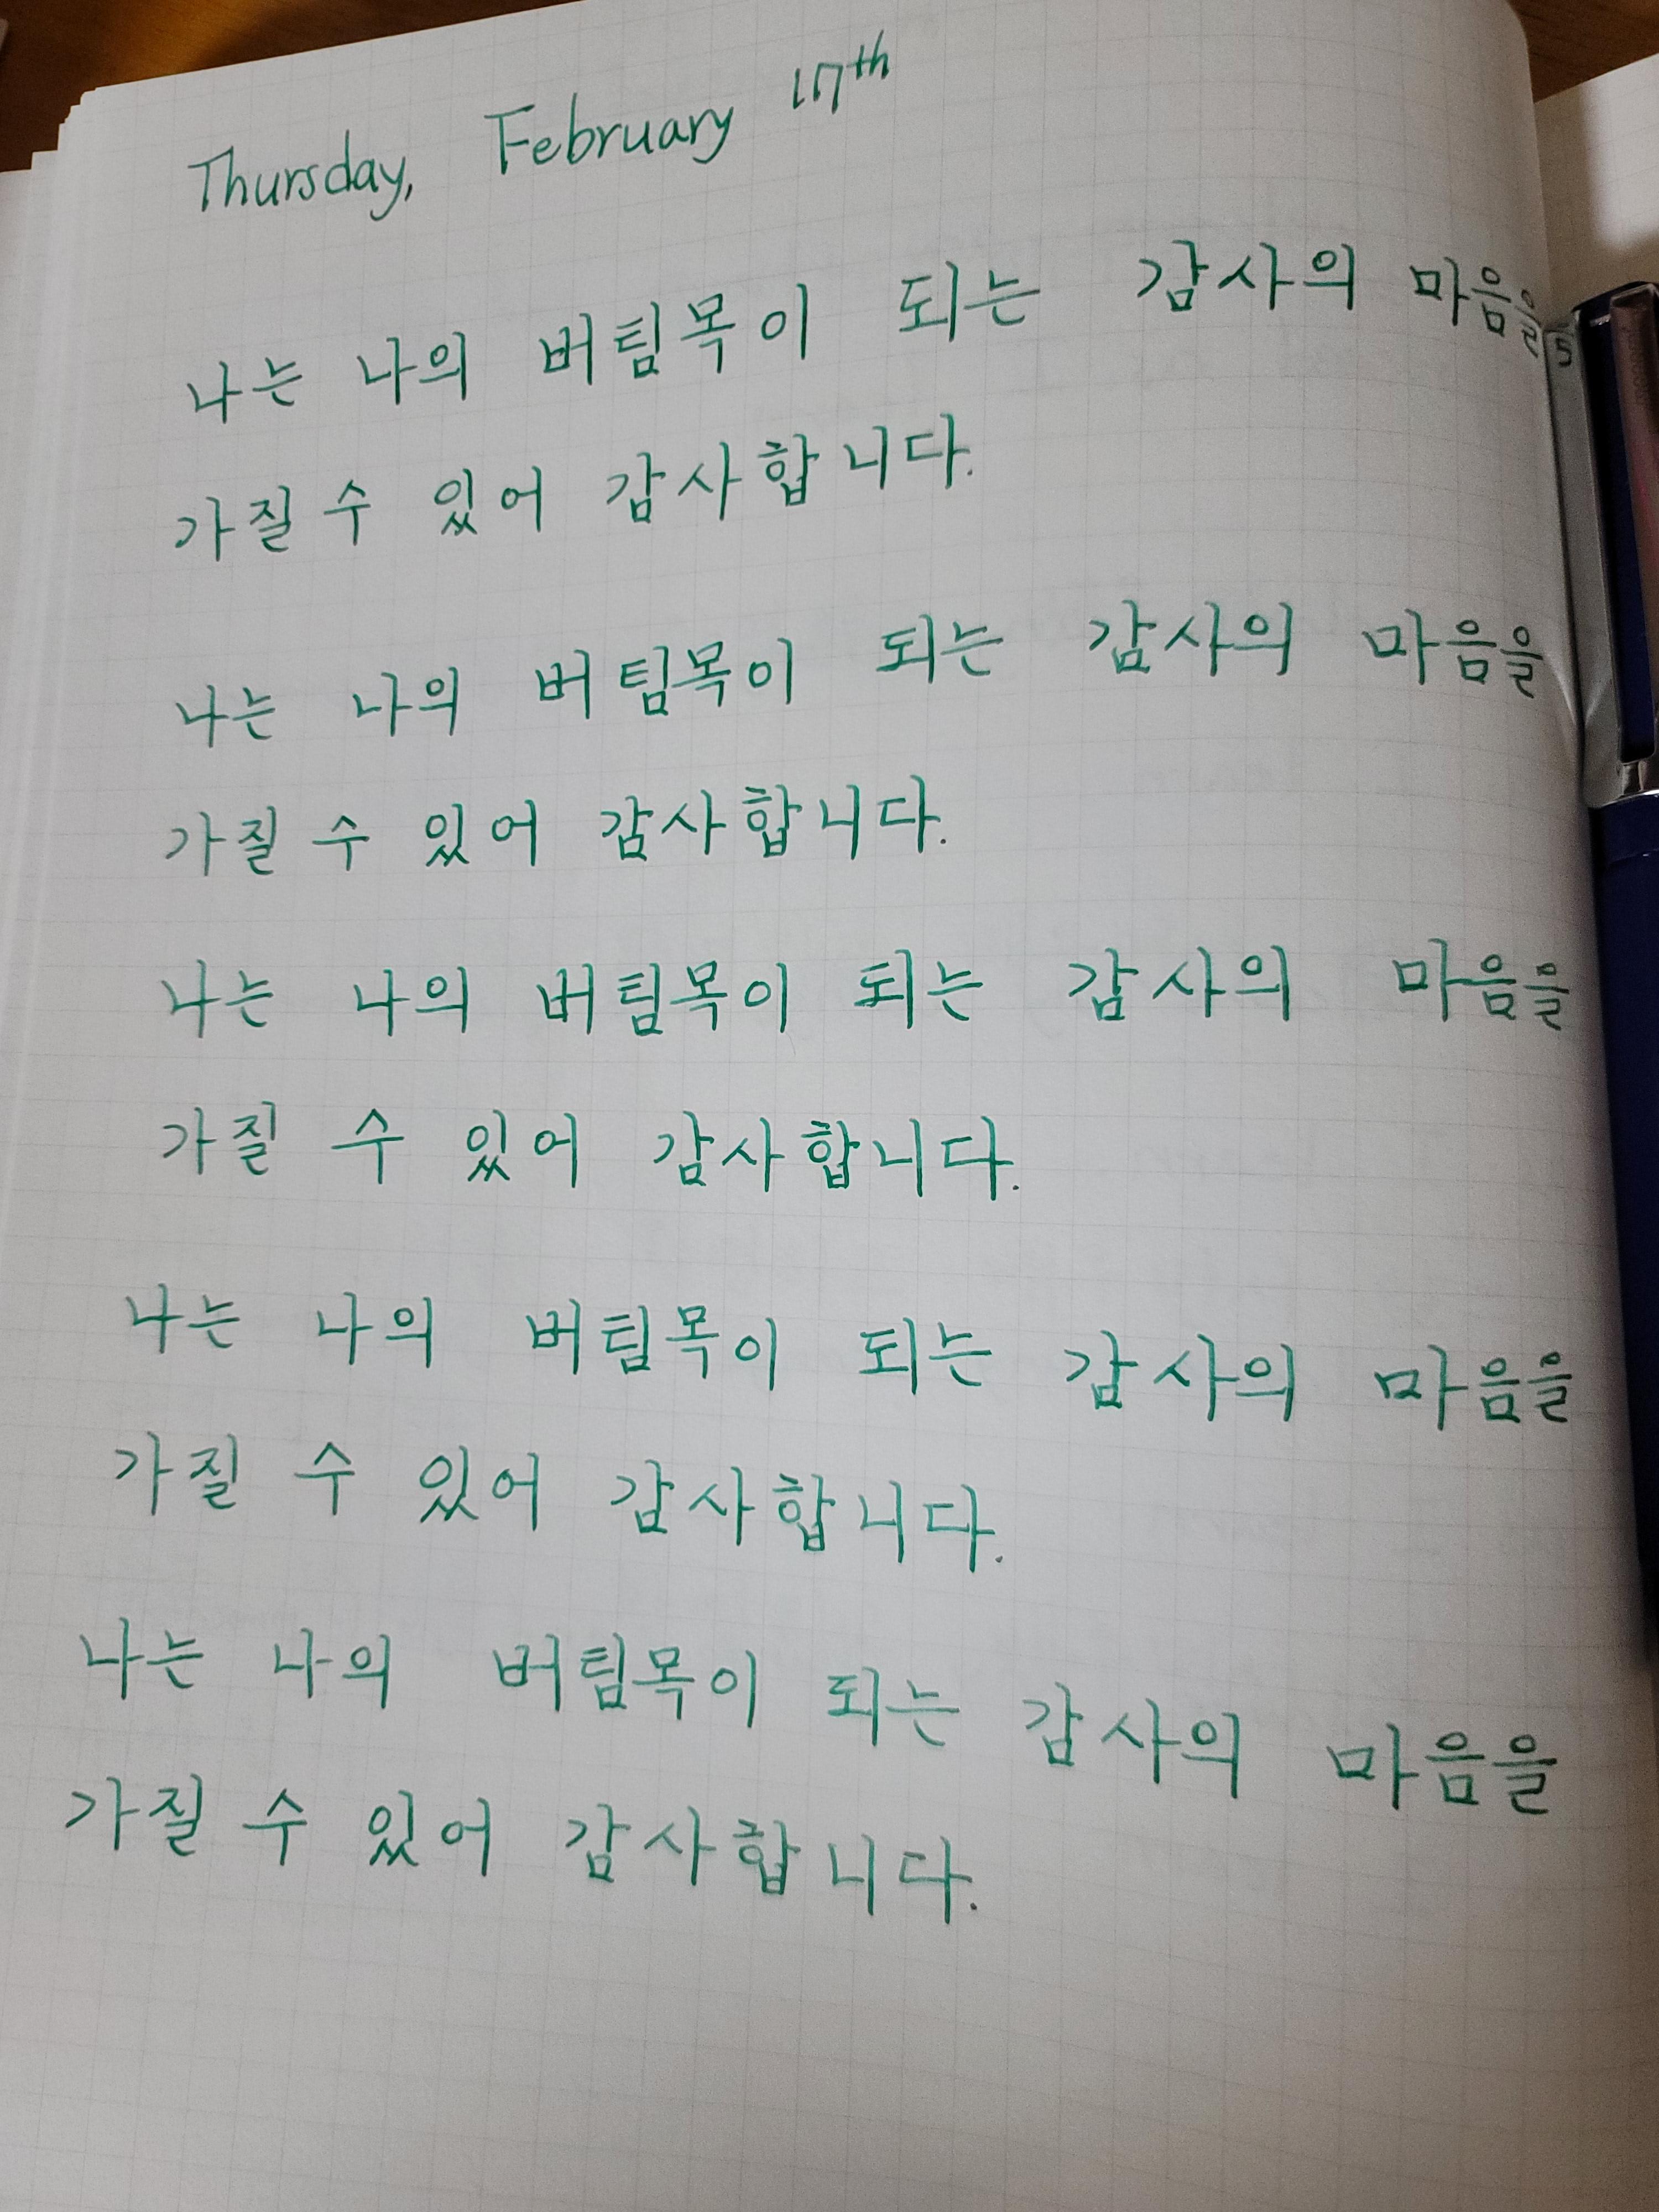 Thursday, February 17th
나는 나의 버팀목이 되는 감사의 마음을
가질 수 있어 감사합니다.
나는 나의 버팀목이 되는 감사의 마음을
가질 수 있어 감사합니다.
나는 나의 버팀목이 되는 감사의 마음을
가질 수 있어 감사합니다.
나는 나의 버팀목이 되는 감사의 마음을
가질 수 있어 감사합니다.
나는 나의 버팀목이 되는 감사의 마음을
가질 수 있어 감사합니다.